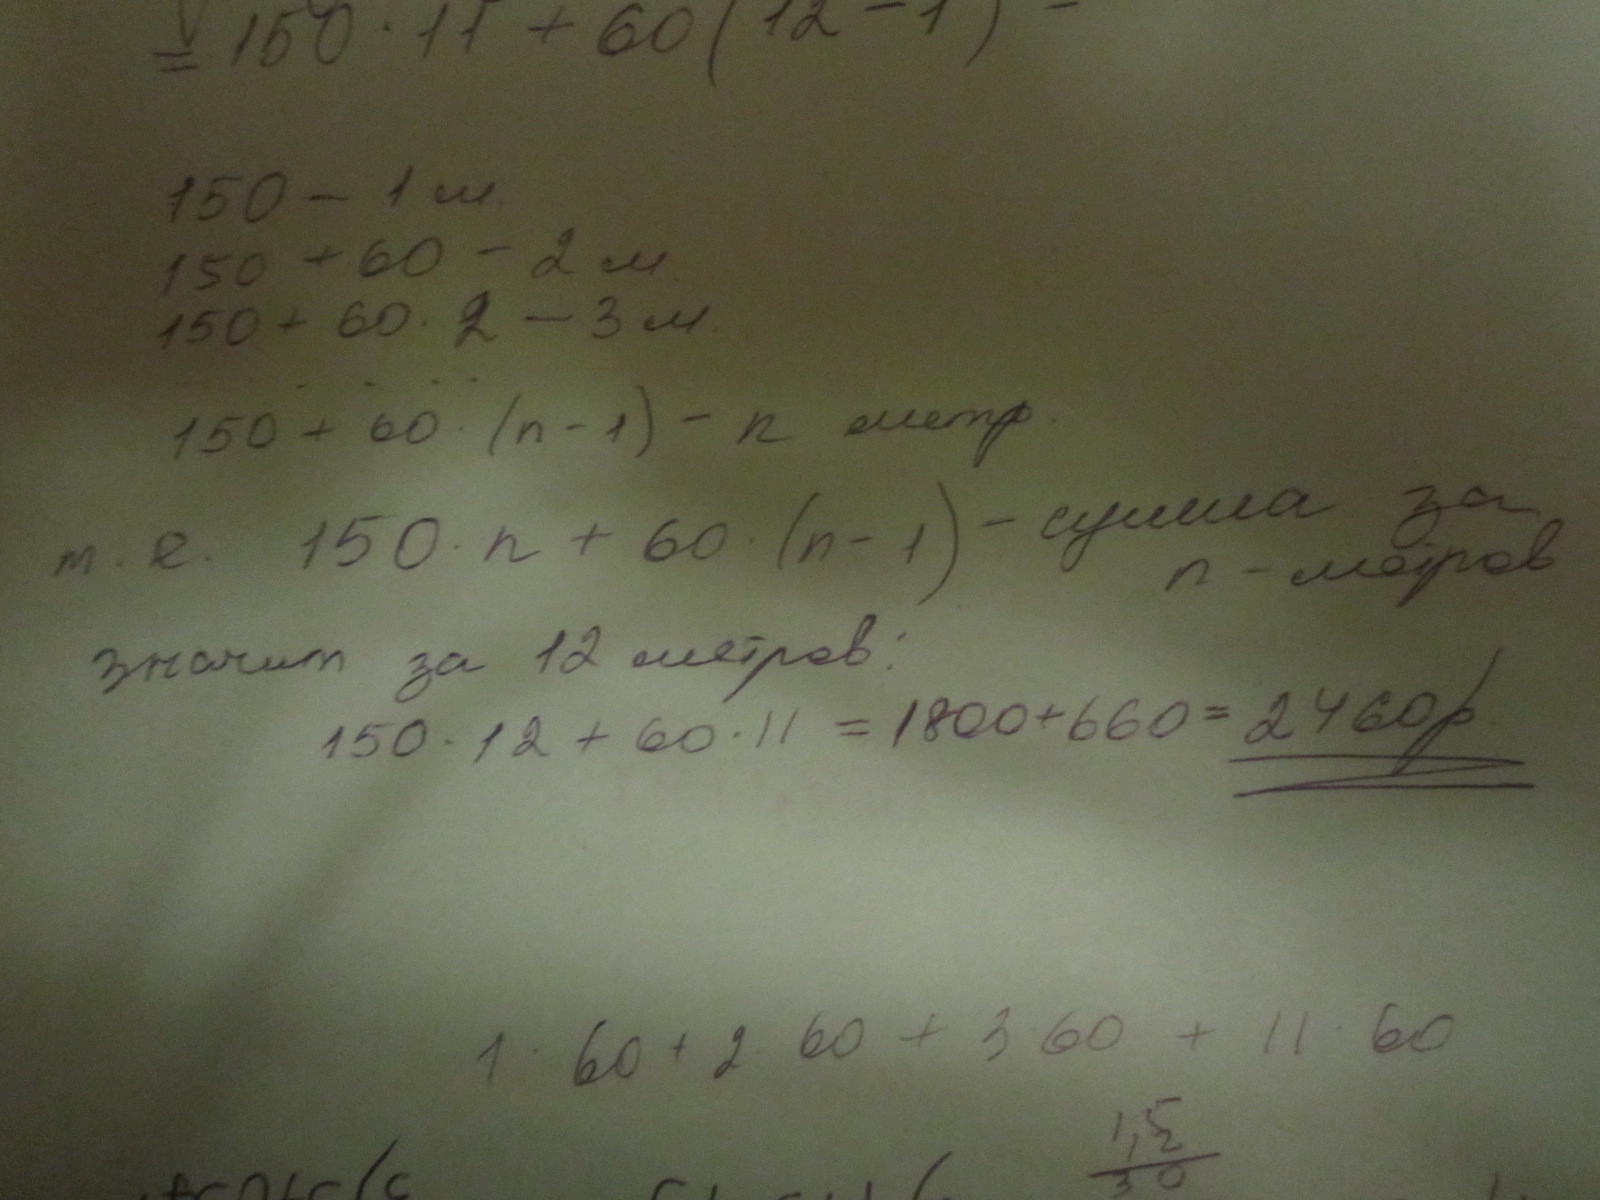 = 150 · 11 + 60 (12 - 1) -
150 - 1 м.
150 + 60 - 2 м.
150 + 60 · 2 - 3 м.
150 + 60 · (n - 1) - n метр.
т. е. 150 · n + 60 · (n - 1) - сумма за
n - метров
значит за 12 метров:
150 · 12 + 60 · 11 = 1800 + 660 = 2460 р.
1 · 60 + 2 · 60 + 3 · 60 + 11 · 60
1,5
30